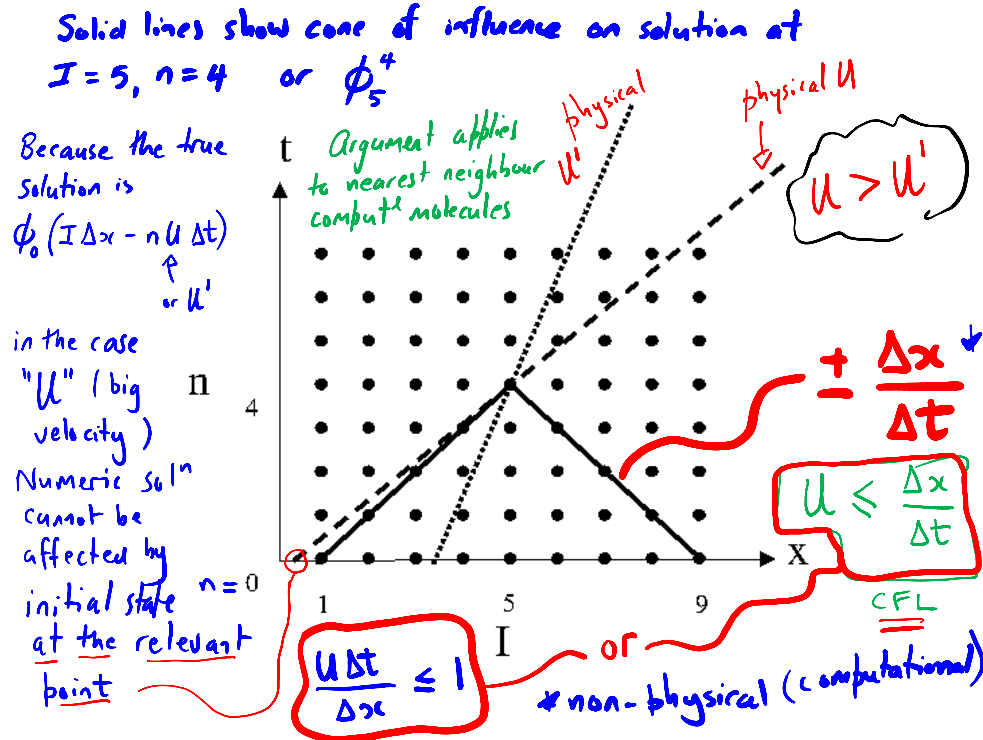 Solid lines show cone of influence on solution at
I = 5, n = 4 or ϕ₅⁴
Because the true
solution is
ϕ₀ (I Δx - n U Δt)
↑
or U'
in the case
"U" (big
velocity)
Numeric solⁿ
cannot be
affected by
initial state
at the relevant
point
t
Argument applies
to nearest neighbour
computˡ molecules
physical
U'
physical U
U > U'
n
4
n = 0
1 5 9
I
x
± Δx / Δt *
U ≤ Δx / Δt
CFL
UΔt / Δx ≤ 1
or
* non-physical (computational)